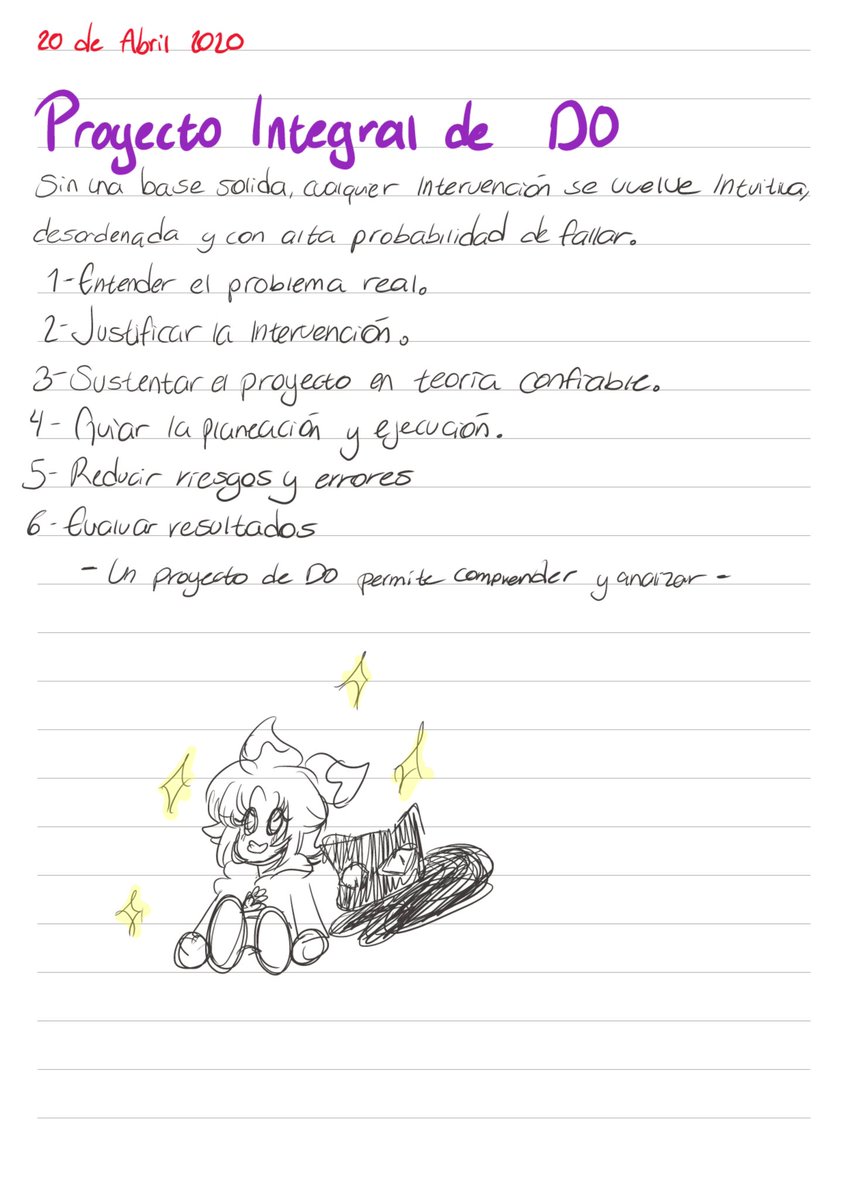 20 de Abril 2020
Proyecto Integral de DO
Sin una base solida, cualquer Intervención se vuelve Intuitiva,
desordenada y con alta probabilidad de fallar.
1-Entender el problema real.
2-Justificar la Intervención.
3-Sustentar el proyecto en teoría confiable.
4- Guiar la planeación y ejecución.
5- Reducir riesgos y errores
6-Evaluar resultados
- Un proyecto de DO permite comprender y anaizar -